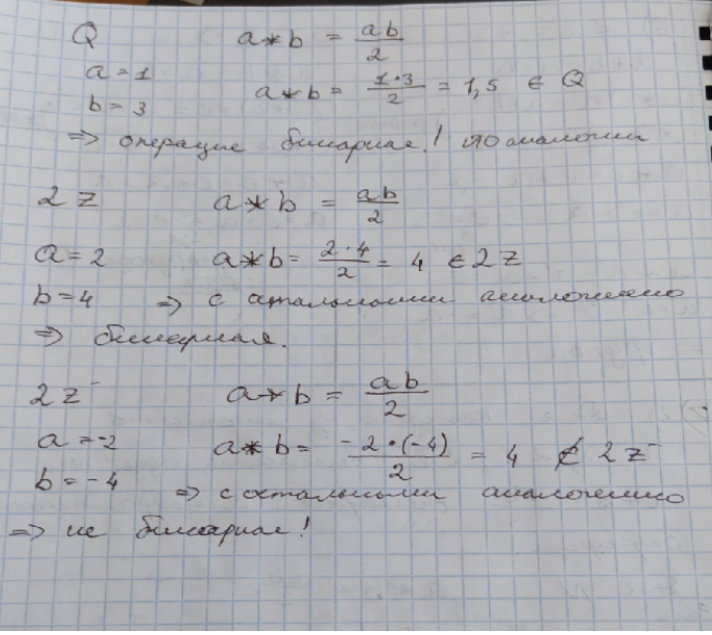 Q a * b = ab/2
a = 1
b = 3 a * b = 1·3/2 = 1,5 ∈ Q
⇒ операция бинарная! по аналогии
2Z a * b = ab/2
a = 2 a * b = 2·4/2 = 4 ∈ 2Z
b = 4 ⇒ с остальными аналогично
⇒ бинарная.
2Z⁻ a * b = ab/2
a = -2 a * b = -2·(-4)/2 = 4 ∉ 2Z⁻
b = -4 ⇒ с остальными аналогично
⇒ не бинарная!